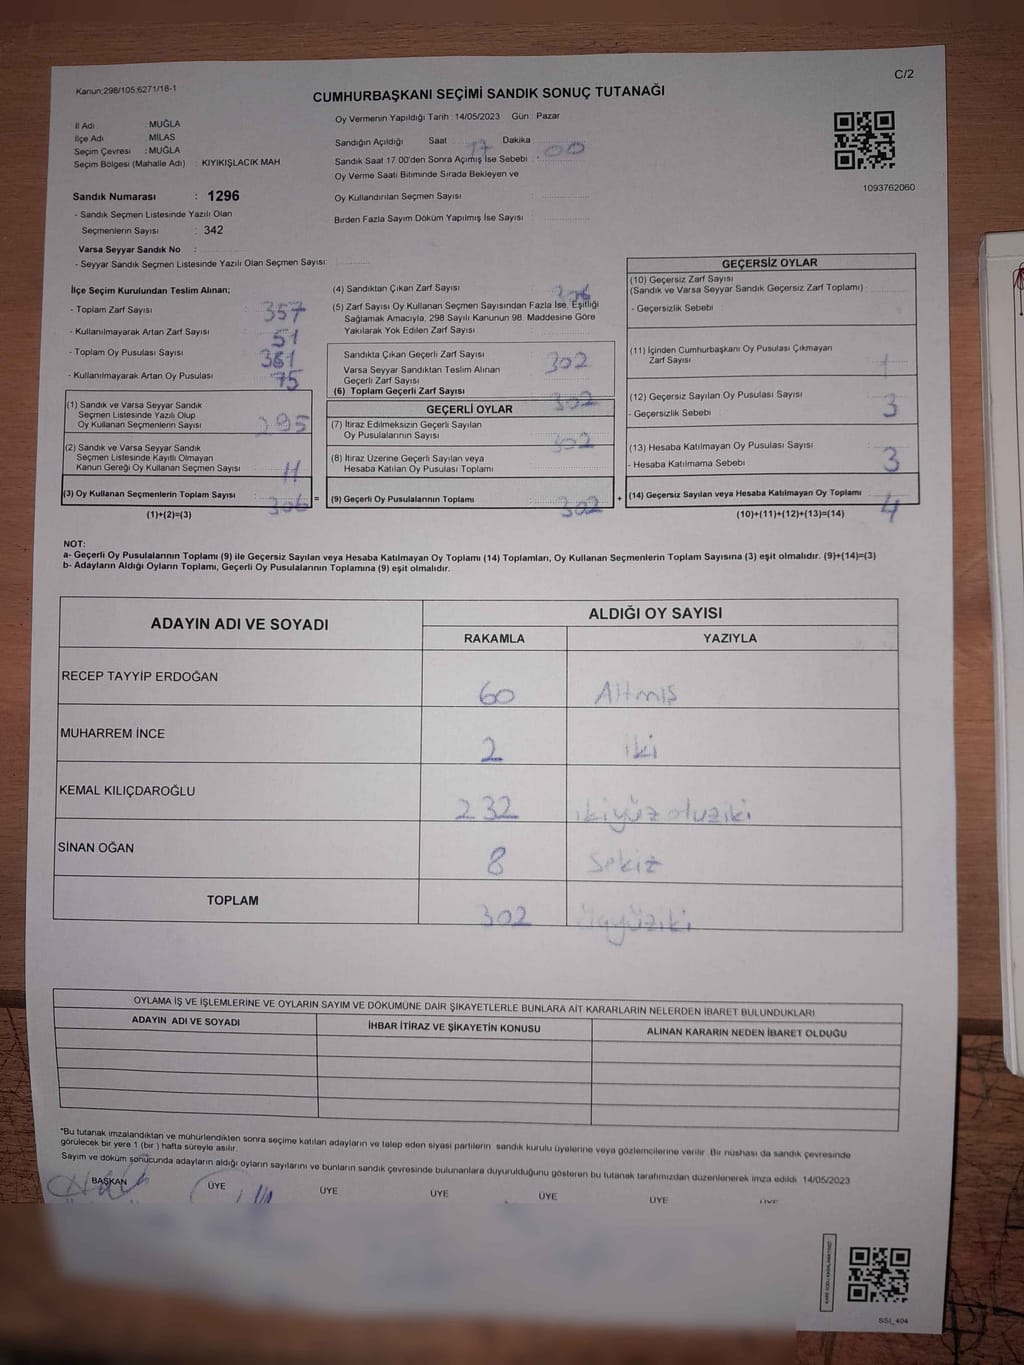 C/2
Kanun:298/105;6271/18-1
CUMHURBAŞKANI SEÇİMİ SANDIK SONUÇ TUTANAĞI
İl Adı : MUĞLA
İlçe Adı : MİLAS
Seçim Çevresi : MUĞLA
Seçim Bölgesi (Mahalle Adı) : KIYIKIŞLACIK MAH
Sandık Numarası : 1296
- Sandık Seçmen Listesinde Yazılı Olan
Seçmenlerin Sayısı : 342
Varsa Seyyar Sandık No :
- Seyyar Sandık Seçmen Listesinde Yazılı Olan Seçmen Sayısı:
Oy Vermenin Yapıldığı Tarih : 14/05/2023 Gün : Pazar
Sandığın Açıldığı Saat 17 Dakika 00
Sandık Saat 17:00'den Sonra Açımış İse Sebebi :
Oy Verme Saati Bitiminde Sırada Bekleyen ve
Oy Kullandırılan Seçmen Sayısı
Birden Fazla Sayım Döküm Yapılmış İse Sayısı
1093762060
İlçe Seçim Kurulundan Teslim Alınan;
- Toplam Zarf Sayısı 357
- Kullanılmayarak Artan Zarf Sayısı 51
- Toplam Oy Pusulası Sayısı 381
- Kullanılmayarak Artan Oy Pusulası 75
(1) Sandık ve Varsa Seyyar Sandık
Seçmen Listesinde Yazılı Olup
Oy Kullanan Seçmenlerin Sayısı 295
(2) Sandık ve Varsa Seyyar Sandık
Seçmen Listesinde Kayıtlı Olmayan
Kanun Gereği Oy Kullanan Seçmen Sayısı 11
(3) Oy Kullanan Seçmenlerin Toplam Sayısı 306
(1)+(2)=(3)
(4) Sandıktan Çıkan Zarf Sayısı 306
(5) Zarf Sayısı Oy Kullanan Seçmen Sayısından Fazla İse, Eşitliği
Sağlamak Amacıyla, 298 Sayılı Kanunun 98. Maddesine Göre
Yakılarak Yok Edilen Zarf Sayısı
Sandıkta Çıkan Geçerli Zarf Sayısı 302
Varsa Seyyar Sandıktan Teslim Alınan
Geçerli Zarf Sayısı
(6) Toplam Geçerli Zarf Sayısı 302
GEÇERLİ OYLAR
(7) İtiraz Edilmeksizin Geçerli Sayılan
Oy Pusulalarının Sayısı 302
(8) İtiraz Üzerine Geçerli Sayılan veya
Hesaba Katılan Oy Pusulası Toplamı
= (9) Geçerli Oy Pusulalarının Toplamı 302
GEÇERSİZ OYLAR
(10) Geçersiz Zarf Sayısı
(Sandık ve Varsa Seyyar Sandık Geçersiz Zarf Toplamı)
- Geçersizlik Sebebi
(11) İçinden Cumhurbaşkanı Oy Pusulası Çıkmayan
Zarf Sayısı 1
(12) Geçersiz Sayılan Oy Pusulası Sayısı 3
- Geçersizlik Sebebi
(13) Hesaba Katılmayan Oy Pusulası Sayısı 3
- Hesaba Katılmama Sebebi
+ (14) Geçersiz Sayılan veya Hesaba Katılmayan Oy Toplamı 4
(10)+(11)+(12)+(13)=(14)
NOT:
a- Geçerli Oy Pusulalarının Toplamı (9) ile Geçersiz Sayılan veya Hesaba Katılmayan Oy Toplamı (14) Toplamları, Oy Kullanan Seçmenlerin Toplam Sayısına (3) eşit olmalıdır. (9)+(14)=(3)
b- Adayların Aldığı Oyların Toplamı, Geçerli Oy Pusulalarının Toplamına (9) eşit olmalıdır.
ADAYIN ADI VE SOYADI ALDIĞI OY SAYISI
RAKAMLA YAZIYLA
RECEP TAYYİP ERDOĞAN 60 Altmış
MUHARREM İNCE 2 iki
KEMAL KILIÇDAROĞLU 232 ikiyüz otuziki
SİNAN OĞAN 8 Sekiz
TOPLAM 302 Üçyüziki
OYLAMA İŞ VE İŞLEMLERİNE VE OYLARIN SAYIM VE DÖKÜMÜNE DAİR ŞİKAYETLERLE BUNLARA AİT KARARLARIN NELERDEN İBARET BULUNDUKLARI
ADAYIN ADI VE SOYADI İHBAR İTİRAZ VE ŞİKAYETİN KONUSU ALINAN KARARIN NEDEN İBARET OLDUĞU
*Bu tutanak imzalandıktan ve mühürlendikten sonra seçime katılan adayların ve talep eden siyasi partilerin sandık kurulu üyelerine veya gözlemcilerine verilir. Bir nüshası da sandık çevresinde
görülecek bir yere 1 (bir ) hafta süreyle asılır.
Sayım ve döküm sonucunda adayların aldığı oyların sayılarını ve bunların sandık çevresinde bulunanlara duyurulduğunu gösteren bu tutanak tarafımızdan düzenlenerek imza edildi. 14/05/2023
BAŞKAN ÜYE ÜYE ÜYE ÜYE ÜYE ÜYE
SSI_404